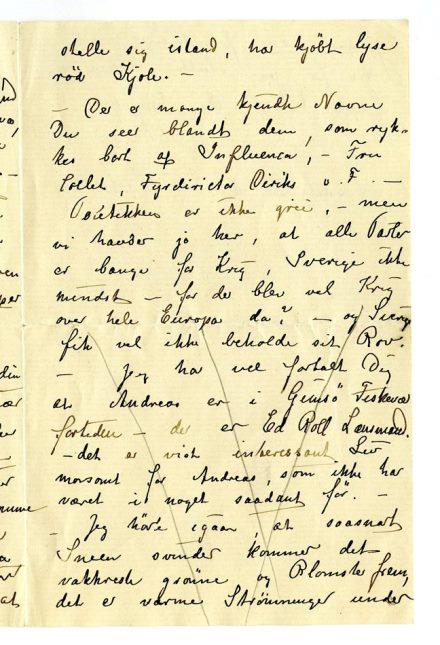 stelle sig istand, har kjöbt lyse
röd Kjole. —
— Der er mange kjendte Navne
Du seer blandt dem, som ryk-
kes bort af Influenca, — Fru
Collet, Fyrdirictör Diriks o. F. —
Politikken er ikke grei, — men
vi haaber jo her, at alle Parter
er bange for Krig, Sverige ikke
mindst — for der blev vel Krig
over hele Europa da? — og Sverige
fik vel ikke beholde sit Rov.
— Jeg har vel fortalt Dig
at Andreas er i Gimsö Fiskevær
fortiden — der er Ed Roll Lænsmand.
— det er vist interessant Liv
morsomt for Andreas, som ikke har
været i noget saadant för. —
— Jeg hörte igaar, at saasnart
Sneen svinder kommer det
vakkreste grönne og Blomster frem,
det er varme Strömninger under